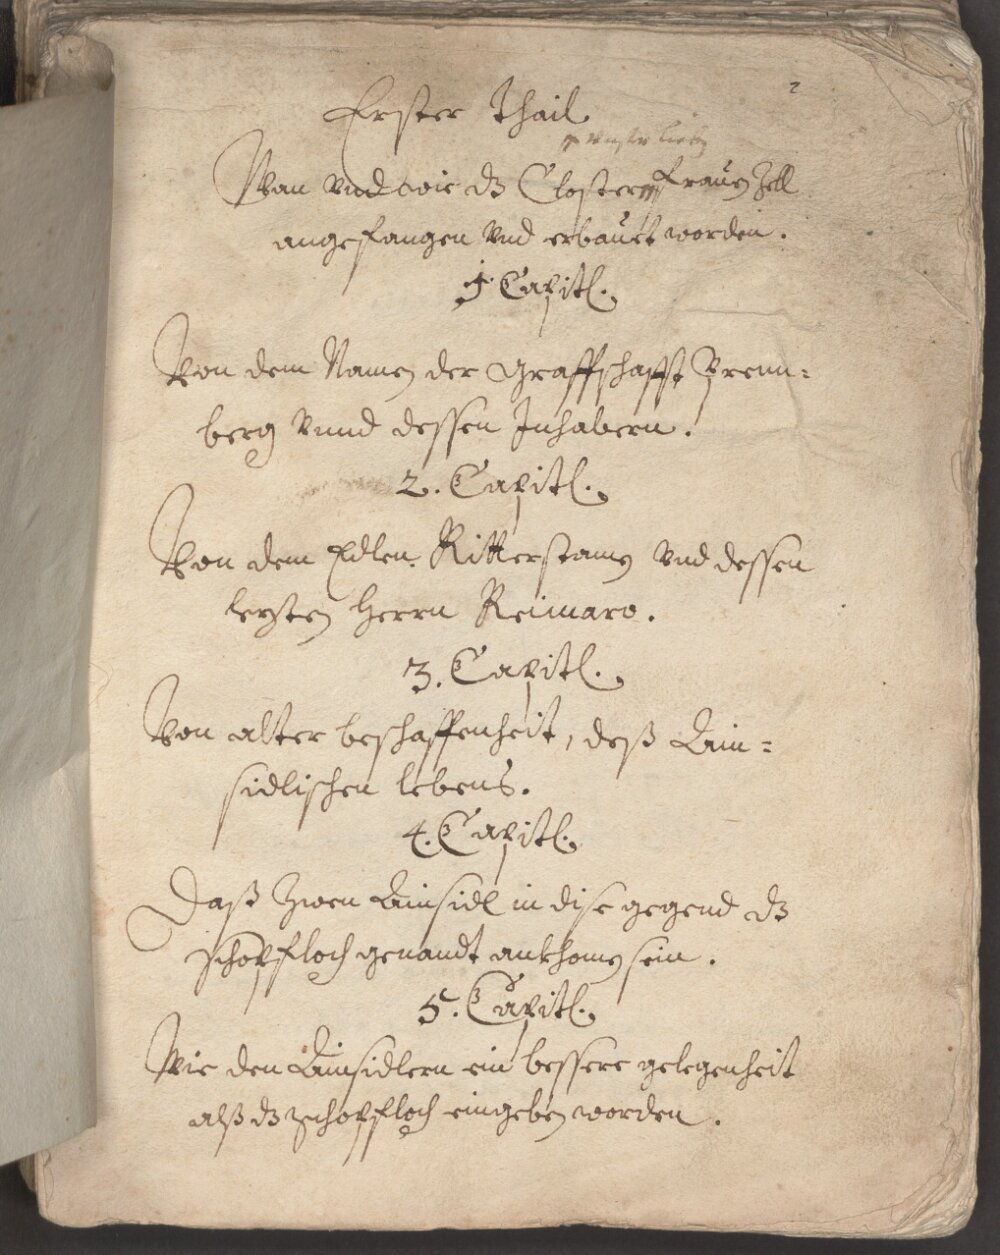 2
Erster Thail.
Wan vnd wie dz Closter Frauen Zell
angefangen vnd erbauet worden.
1 Capitl.
Von dem Namen der Graffschafft Prenn=
berg vnnd dessen Inhabern.
2. Capitl.
Von dem Edlen Ritterstamen vnd dessen
lezsten Herrn Reimaro.
3. Capitl.
Von alter beschaffenheit, deß Ain=
sidlischen lebens.
4. Capitl.
Daß zwen Ainsidl in dise gegend dz
schopfloch genandt ankhomen sein.
5. Capitl.
Wie den Ainsidlern ein bessere gelegenheit
alß dz schopffloch eingeben worden.